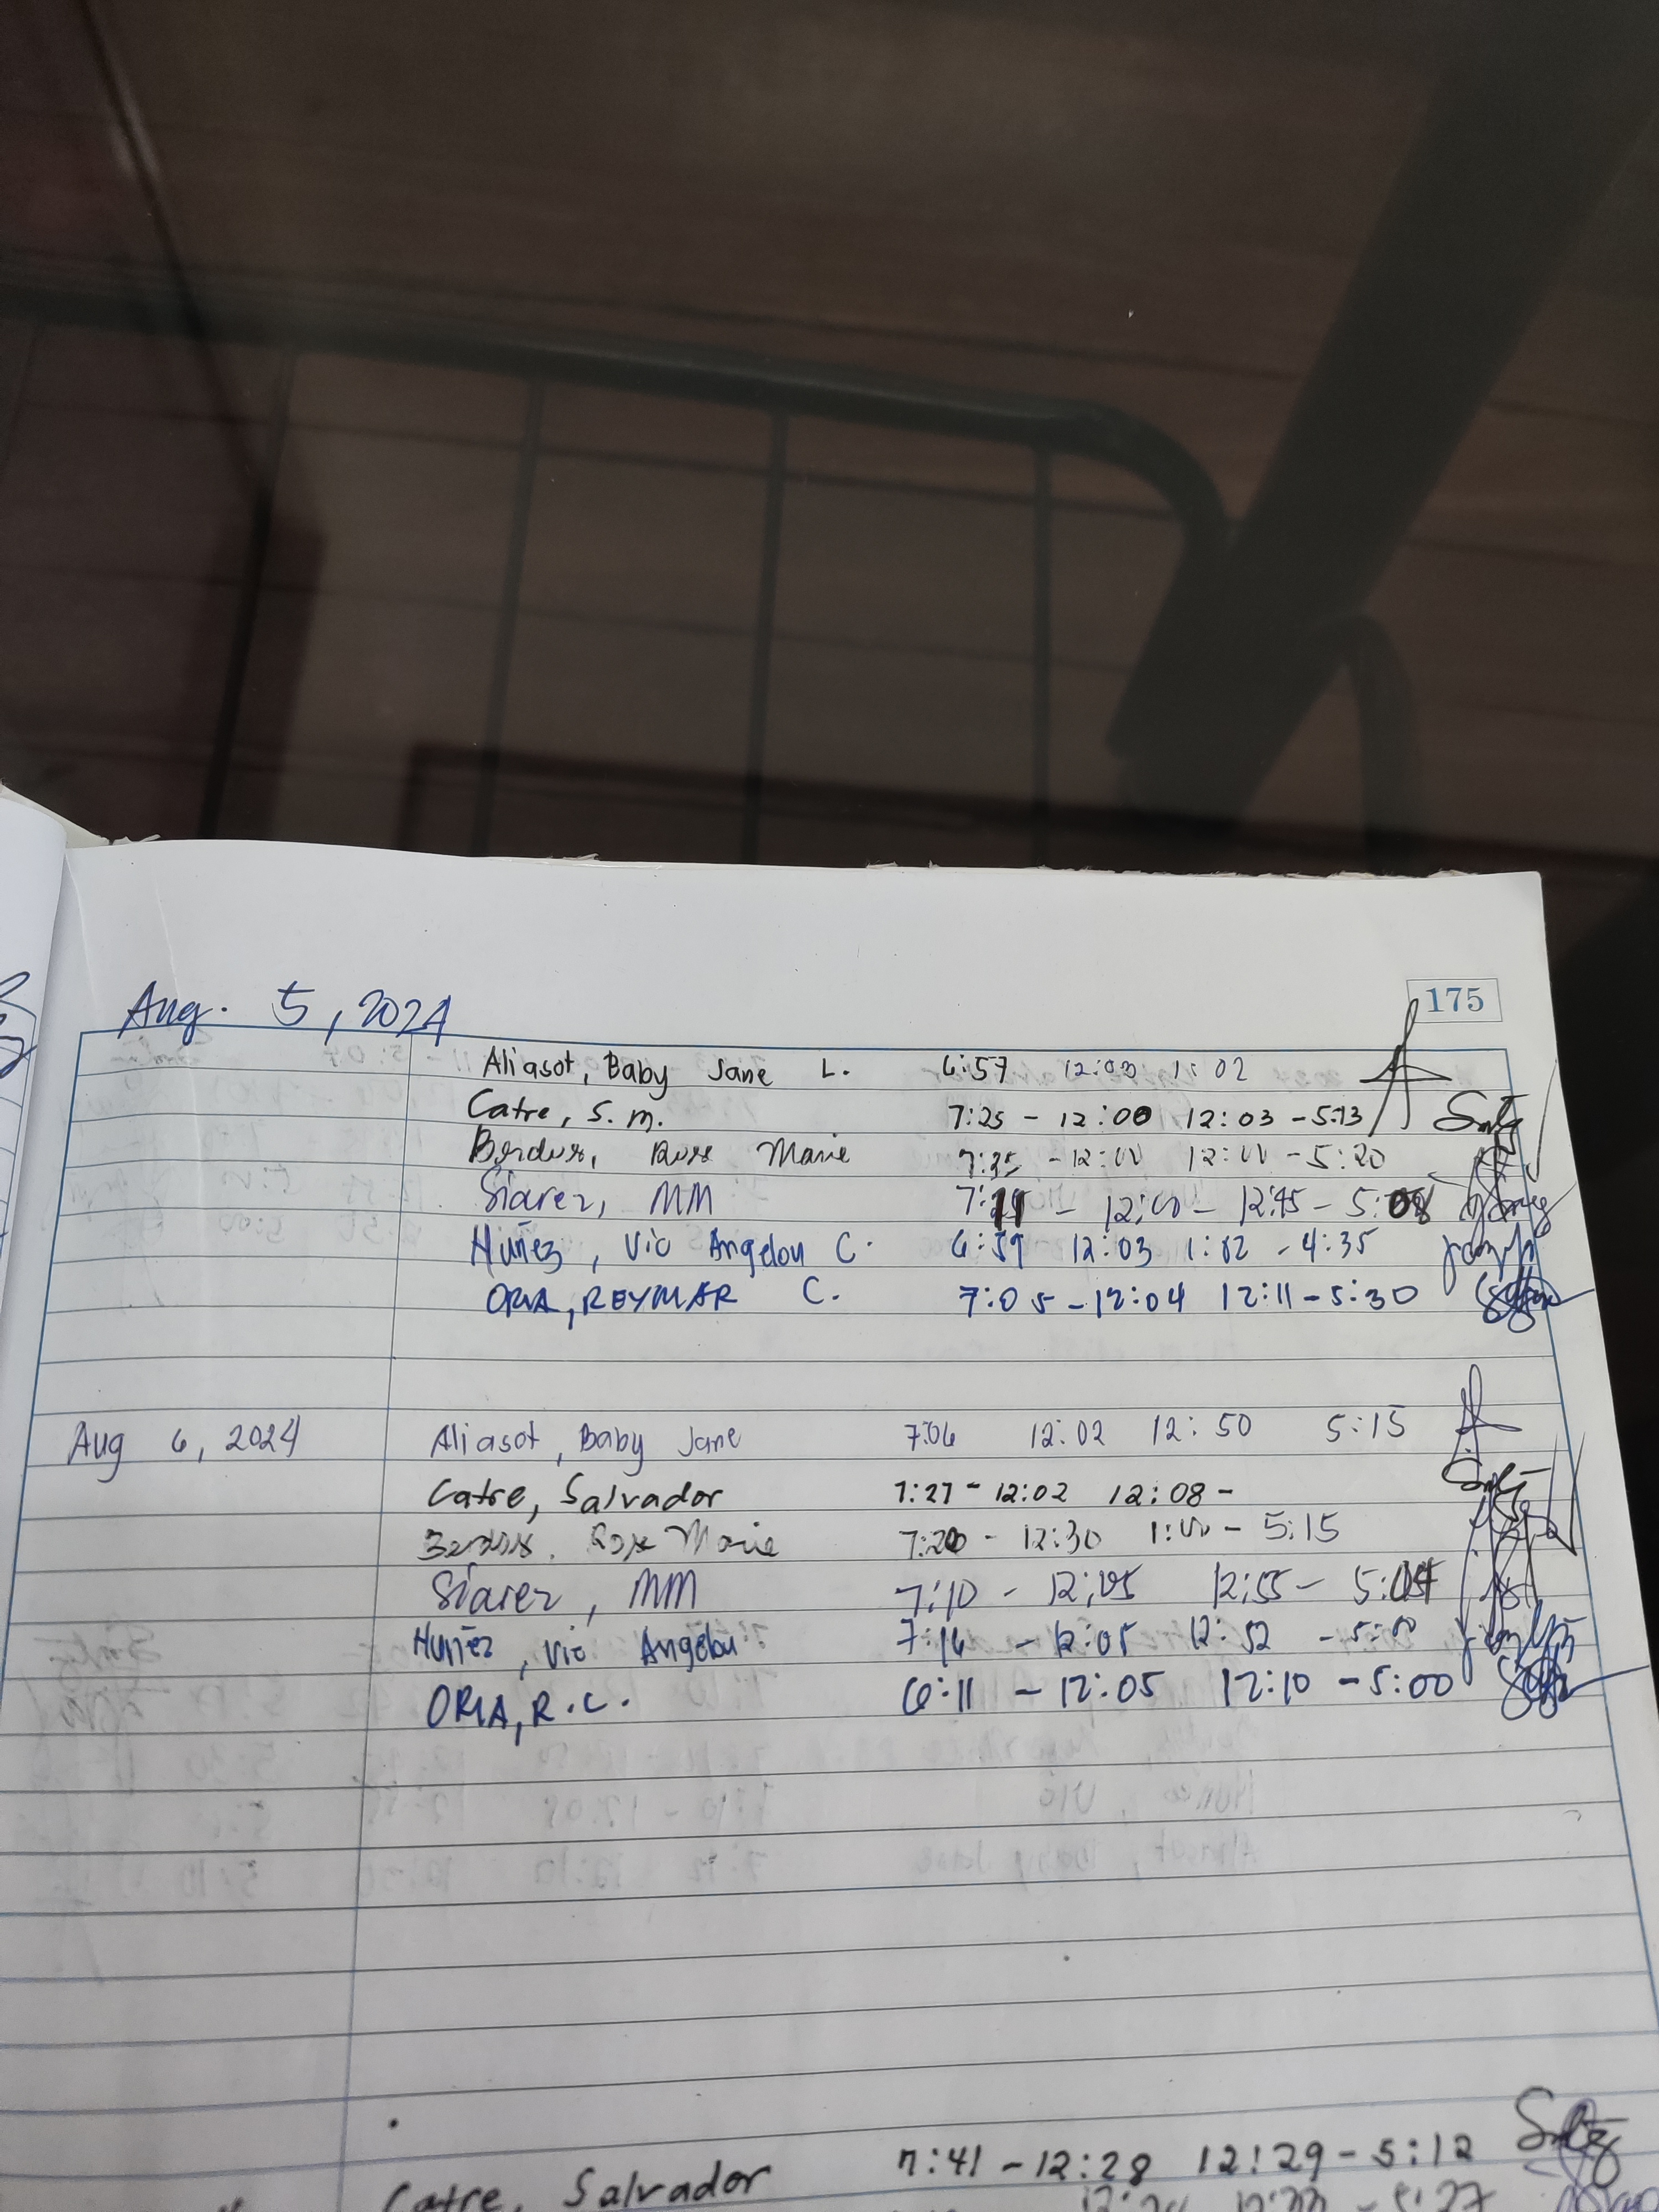 175
Aug. 5, 2024
Aliasot, Baby Jane L. 6:57 12:00 1:02
Catre, S.M. 7:25 - 12:00 12:03 - 5:13
Marie - 12:00 12:00 - 5:20
Siarez, MM - 12:00 - 12:45 - 5:08
Nuñez, Vic Angelou C. 6:59 12:03 1:02 - 4:35
ORIA, REYMAR C. 7:05 - 12:04 12:11 - 5:30
Aug 6, 2024 Aliasot, Baby Jane 7:06 12:02 12:50 5:15
Catre, Salvador 7:27 - 12:02 12:08 -
Rose Marie 7:20 - 12:30 1:00 - 5:15
Siarez, MM 7:10 - 12:05 12:55 - 5:04
Nuñez, Vic Angelou 12:05 12:52 - 5:00
ORIA, R.C. 6:11 - 12:05 12:10 - 5:00
Catre, Salvador 7:41 - 12:28 12:29 - 5:12
5:27